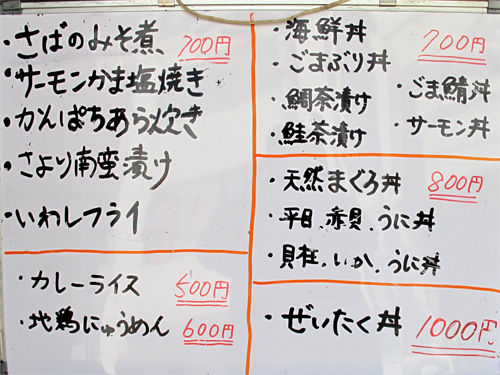 ・さばのみそ煮 700円
・サーモンかま塩焼き
・かんぱちあら炊き
・さより南蛮漬け
・いわしフライ
・カレーライス 500円
・地鶏にゅうめん 600円
・海鮮丼 700円
・ごまぶり丼
・ごま鯖丼
・鯛茶漬け
・サーモン丼
・鮭茶漬け
・天然まぐろ丼 800円
・平目、赤貝、うに丼
・貝柱、いか、うに丼
・ぜいたく丼 1000円